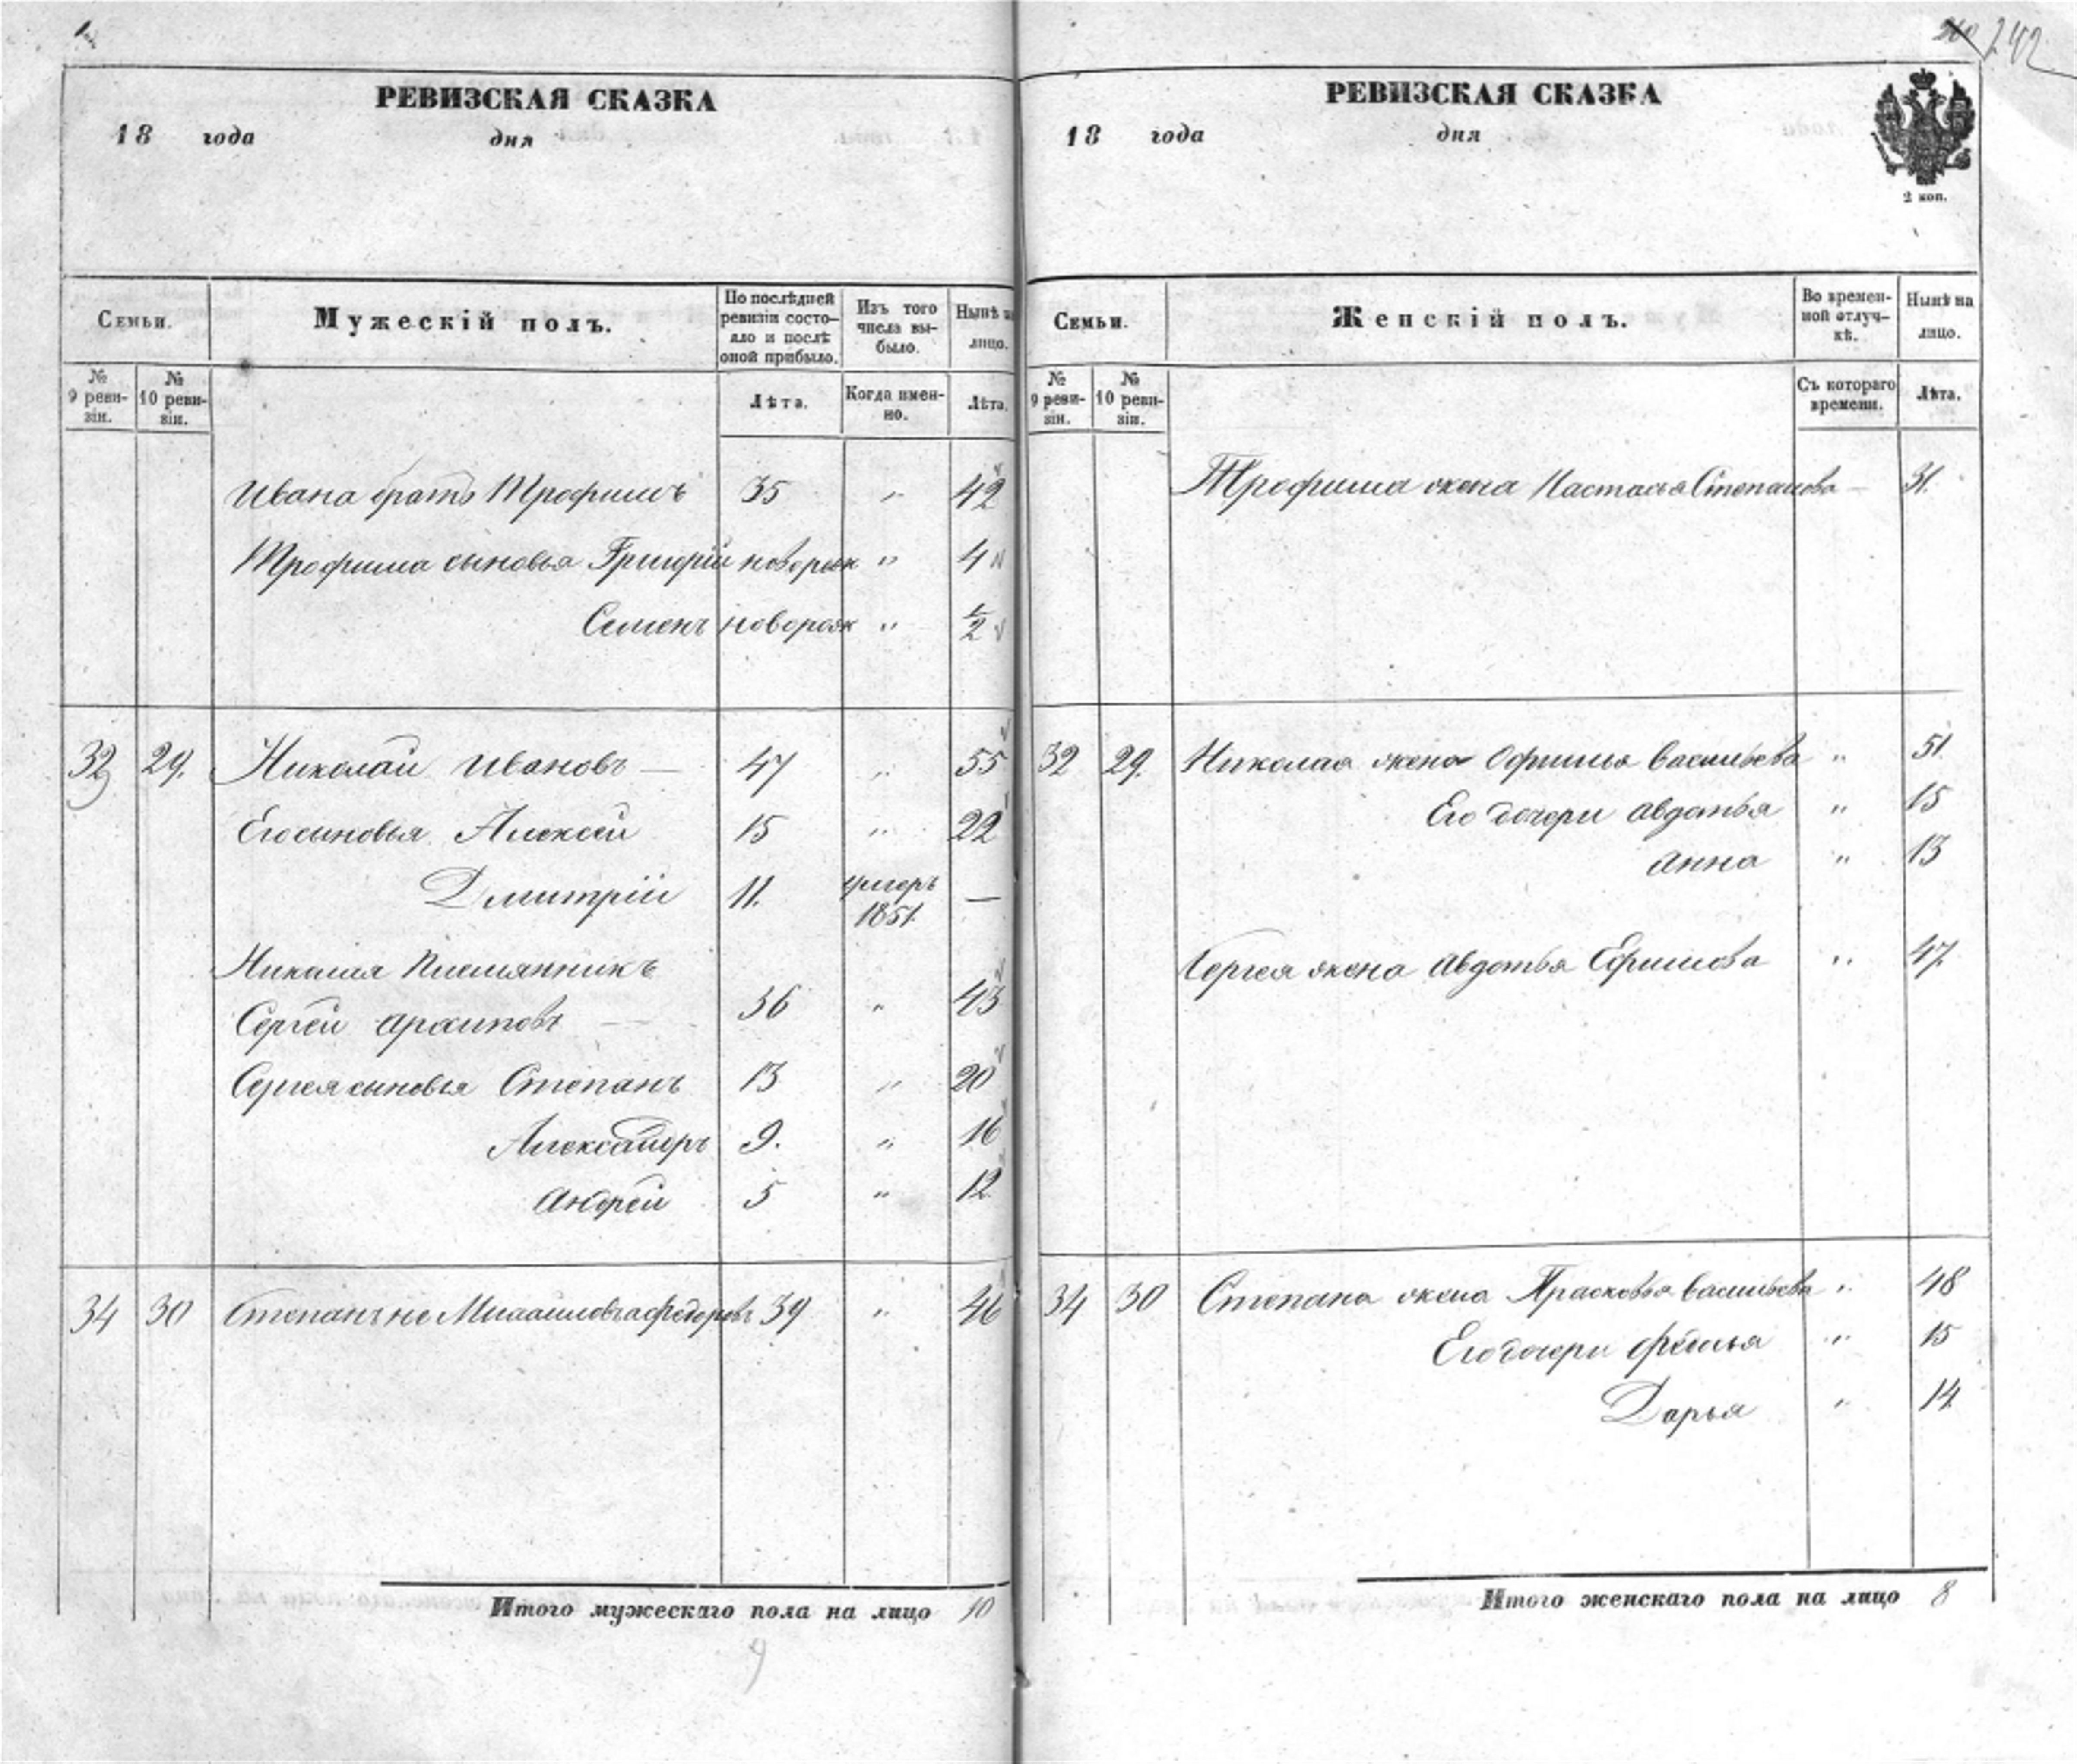 242
РЕВИЗСКАЯ СКАЗКА
18 года дня
Семьи.
Мужескій полъ.
По послѣдней ревизіи состояло и послѣ оной прибыло.
Изъ того числа выбыло.
Нынѣ на лицо.
№ 9 ревизіи.
№ 10 ревизіи.
Лѣта.
Когда именно.
Лѣта.
Ивана братъ Трофимъ 35 " 42
Трофима сыновья Григорій новорож " 4
Семенъ новорож " 1/2
32 29. Николай Ивановъ — 47 " 55
Его сыновья Алексей 15 " 22
Дмитрій 11. умеръ 1851. —
Николая Племянникъ
Сергей Архиповъ — 36 " 43
Сергея сыновья Степанъ 13 " 20
Александръ 9. " 16
Андрей 5 " 12
34 30 Степанъ не Михайловъ а Федоровъ 39 " 46
Итого мужескаго пола на лицо 10
9
РЕВИЗСКАЯ СКАЗКА
18 года дня
2 коп.
Семьи.
Женскій полъ.
Во временной отлучкѣ.
Нынѣ на лицо.
№ 9 ревизіи.
№ 10 ревизіи.
Съ котораго времени.
Лѣта.
Трофима жена Настасья Степанова — 31.
32 29. Николая жена Офимья Васильева " 51.
Его дочери Авдотья " 15
Анна " 13
Сергея жена Авдотья Ефимова " 47.
34 30 Степана жена Прасковья Васильева " 48
Его дочери Фёкла " 15
Дарья " 14
Итого женскаго пола на лицо 8